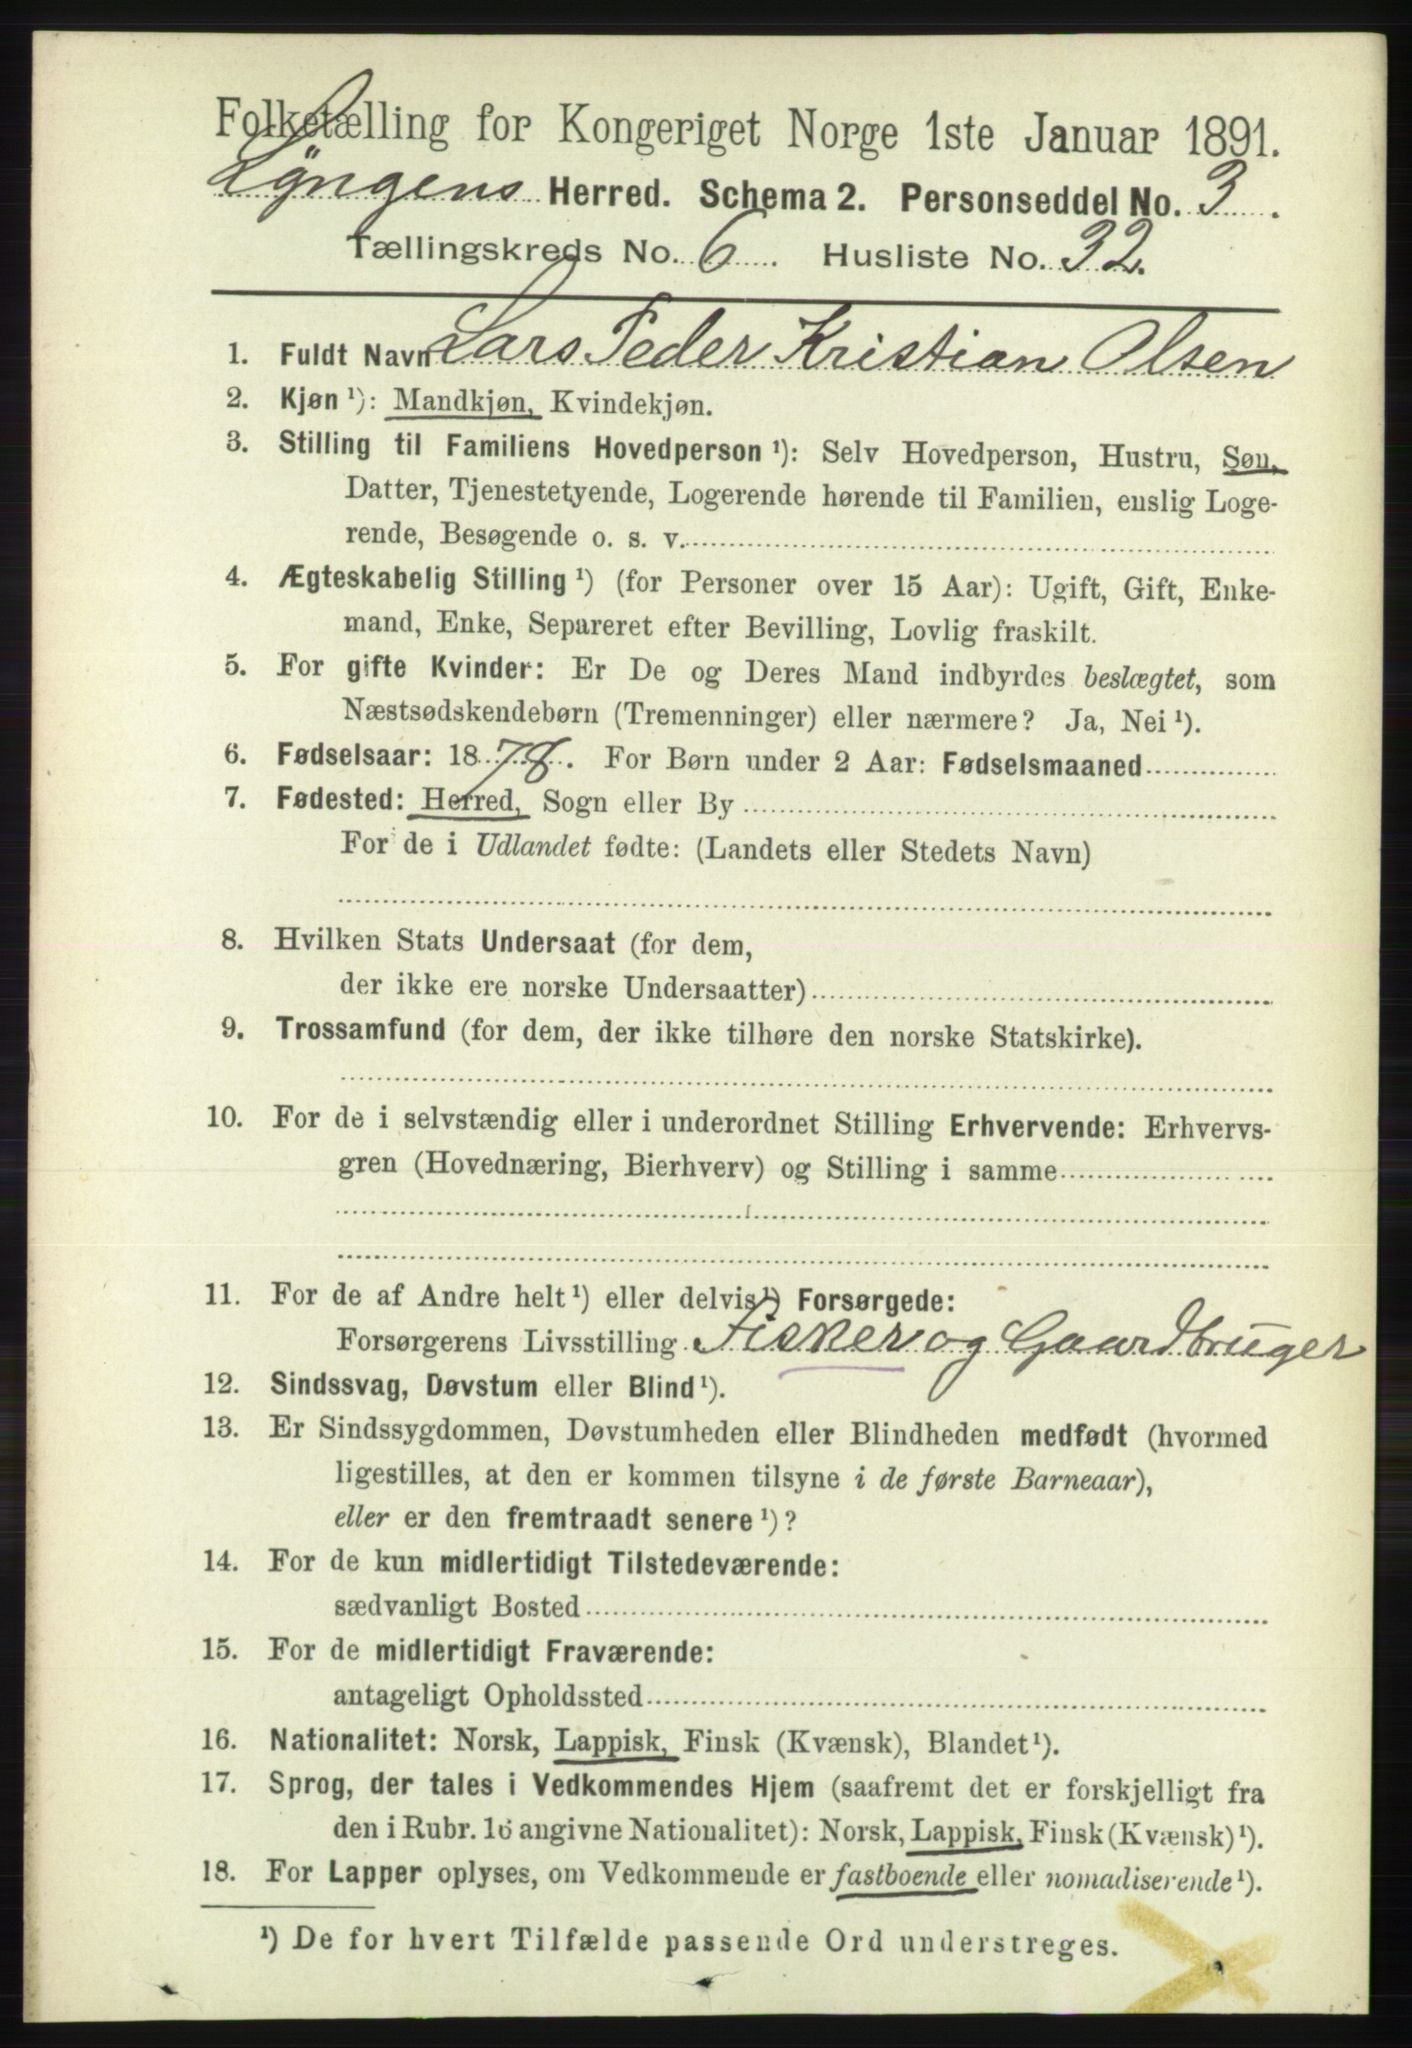 Folketælling for Kongeriget Norge 1ste Januar 1891.
Lyngens Herred. Schema 2. Personseddel No. 3.
Tællingskreds No. 6. Husliste No. 32.
1. Fuldt Navn Lars Peder Kristian Olsen
2. Kjøn ¹): Mandkjøn, Kvindekjøn.
3. Stilling til Familiens Hovedperson ¹): Selv Hovedperson, Hustru, Søn,
Datter, Tjenestetyende, Logerende hørende til Familien, enslig Loge-
rende, Besøgende o. s. v.
4. Ægteskabelig Stilling ¹) (for Personer over 15 Aar): Ugift, Gift, Enke-
mand, Enke, Separeret efter Bevilling, Lovlig fraskilt.
5. For gifte Kvinder: Er De og Deres Mand indbyrdes beslægtet, som
Næstsødskendebørn (Tremenninger) eller nærmere? Ja, Nei ¹).
6. Fødselsaar: 1878. For Børn under 2 Aar: Fødselsmaaned
7. Fødested: Herred, Sogn eller By
For de i Udlandet fødte: (Landets eller Stedets Navn)
8. Hvilken Stats Undersaat (for dem,
der ikke ere norske Undersaatter)
9. Trossamfund (for dem, der ikke tilhøre den norske Statskirke).
10. For de i selvstændig eller i underordnet Stilling Erhvervende: Erhvervs-
gren (Hovednæring, Bierhverv) og Stilling i samme
11. For de af Andre helt ¹) eller delvis ¹) Forsørgede:
Forsørgerens Livsstilling Fisker og Gaardbruger
12. Sindssvag, Døvstum eller Blind ¹).
13. Er Sindssygdommen, Døvstumheden eller Blindheden medfødt (hvormed
ligestilles, at den er kommen tilsyne i de første Barneaar),
eller er den fremtraadt senere ¹)?
14. For de kun midlertidigt Tilstedeværende:
sædvanligt Bosted
15. For de midlertidigt Fraværende:
antageligt Opholdssted
16. Nationalitet: Norsk, Lappisk, Finsk (Kvænsk), Blandet ¹).
17. Sprog, der tales i Vedkommendes Hjem (saafremt det er forskjelligt fra
den i Rubr. 16 angivne Nationalitet): Norsk, Lappisk, Finsk (Kvænsk) ¹).
18. For Lapper oplyses, om Vedkommende er fastboende eller nomadiserende ¹).
¹) De for hvert Tilfælde passende Ord understreges.